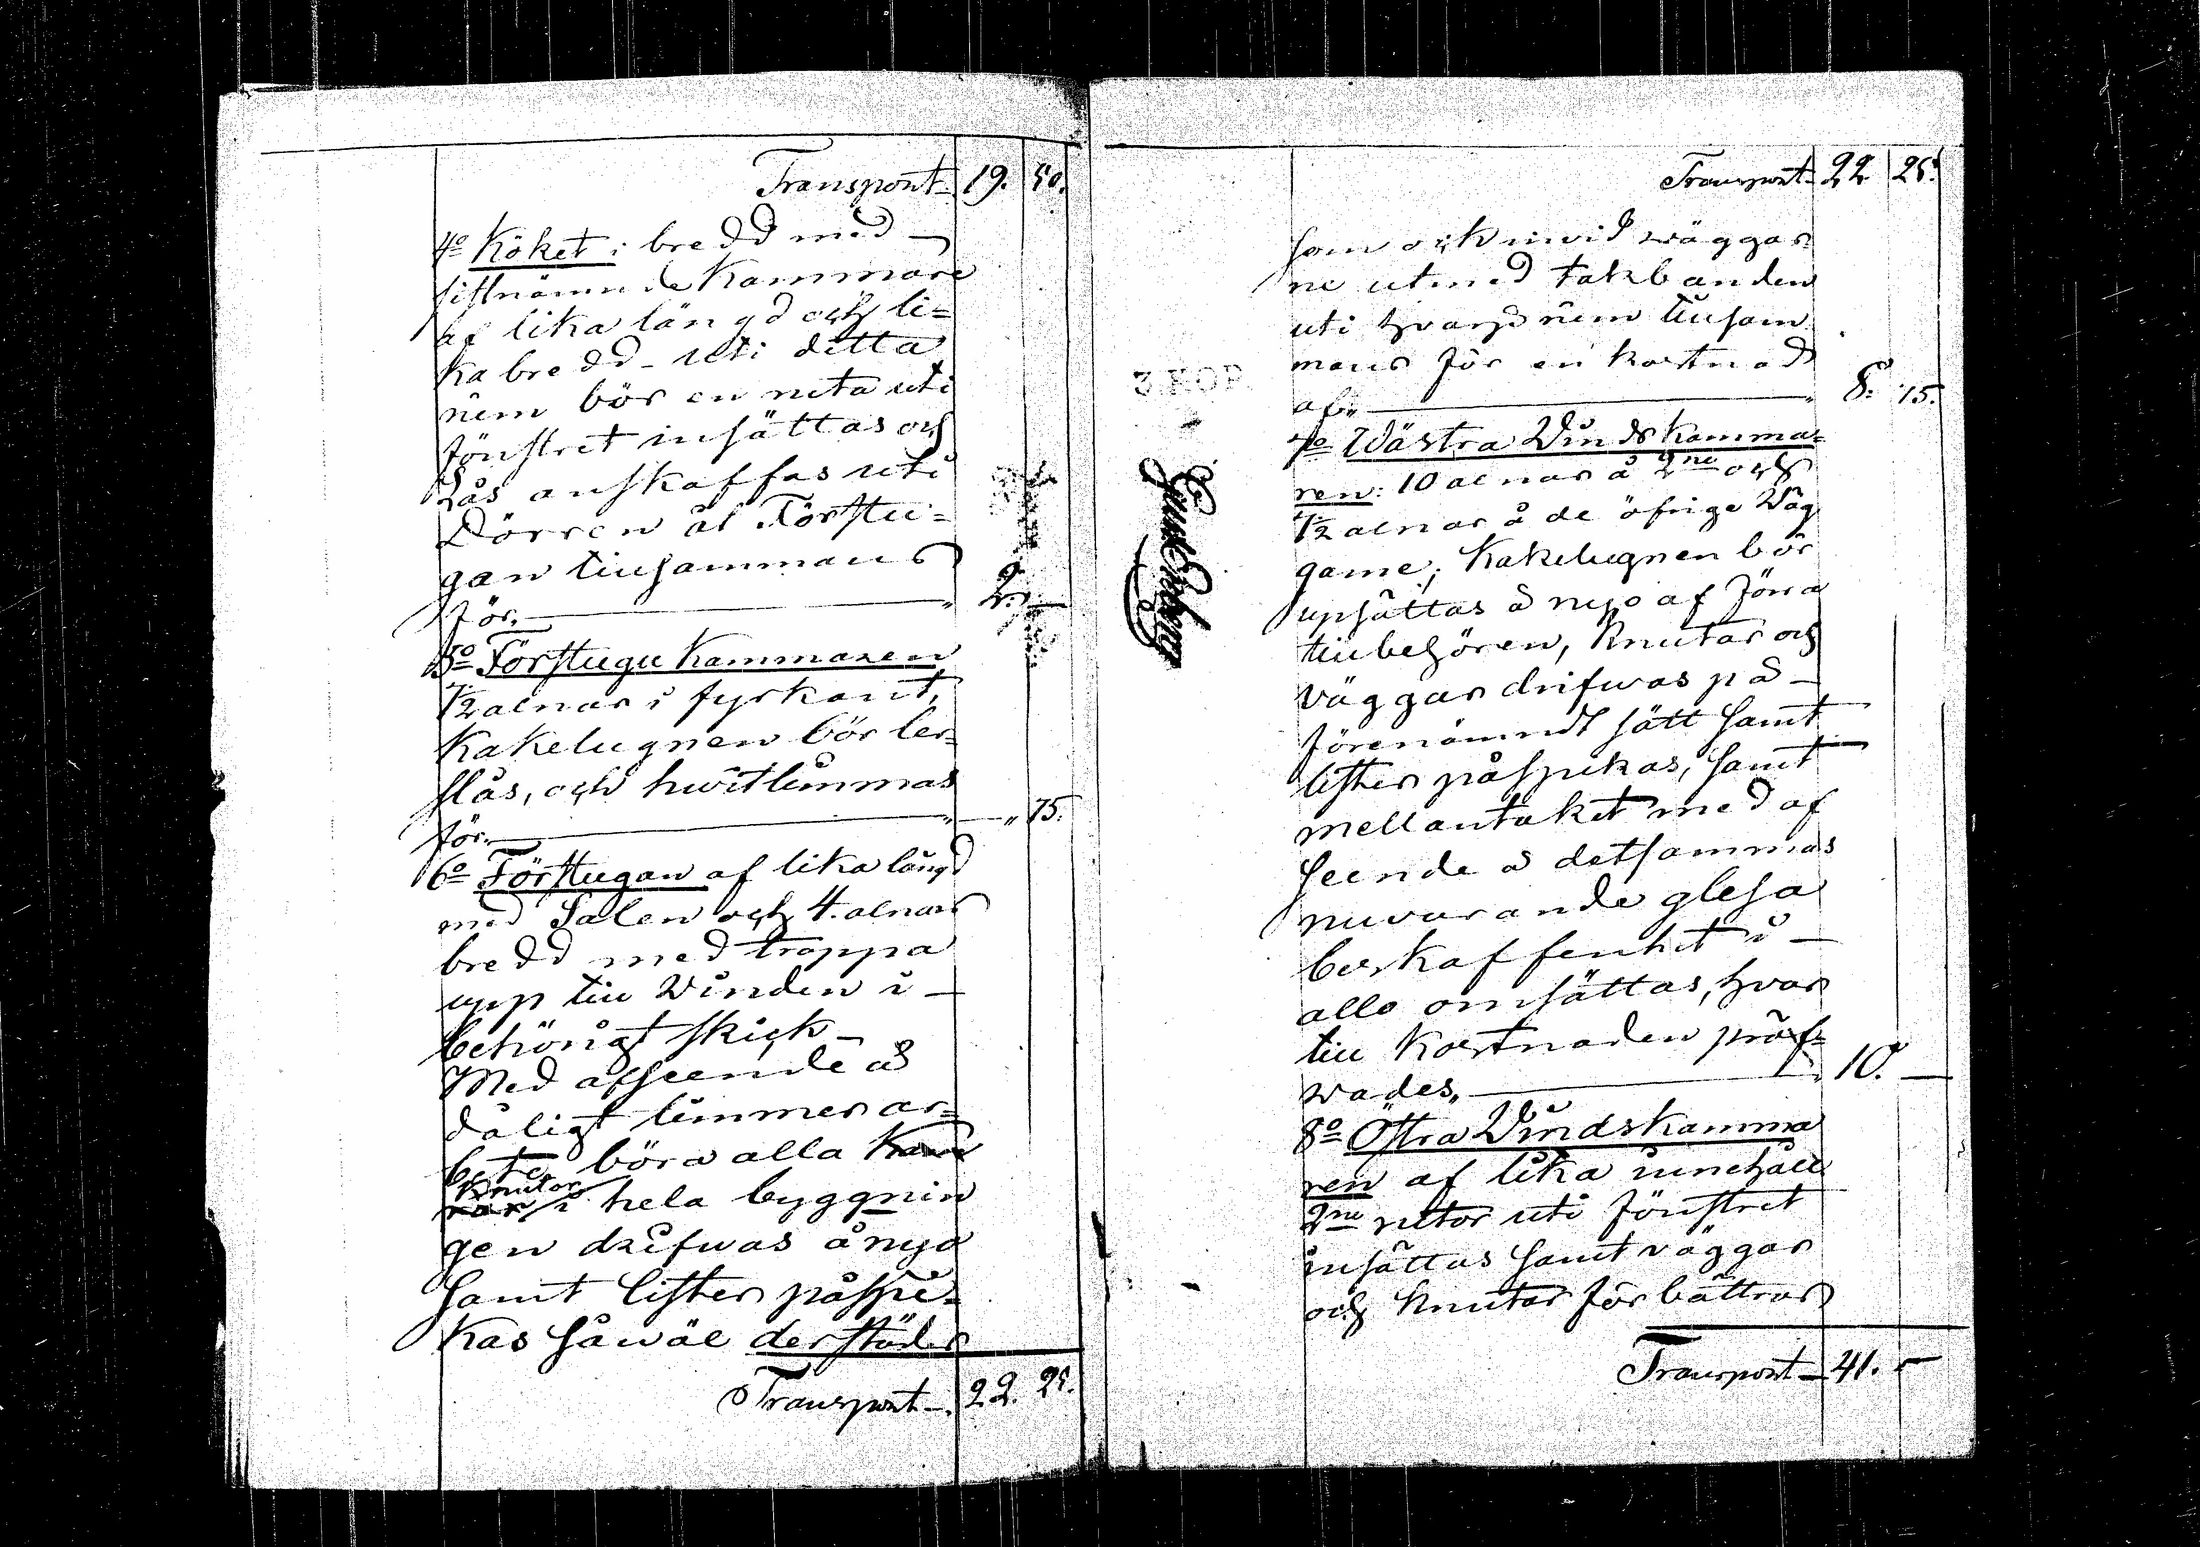 Transport 19. 50.
4o Köket i bredd med
sistnämnde Kammare
af lika längd och li=
ka bredd - uti detta
rum bör en ruta uti
fönstret insättas och
Lås anskaffas uti
Dörren åt Förstu=
gan tillsammans
för, — " 2. —
5o Förstugu Kammaren
7½ alnar i fyrkant,
Kakelugnen bör ler=
slås, och hwitlimmas
för. — " — " 75.
6o Förstugan af lika längd
med Salen och 4. alnars
bredd med trappa
upp till Winden i -
behörigt skick -
Med afseende å
dåligt timmer ar=
bete böra alla
Knutar i hela byggnin
gen drifwas å nyo
samt lister påspi=
kas såwäl derstädes
Transport - 22. 25.
Transport - 22 25.
som ock invid wäggar
ne utmed takbanden
uti hvarje rum tillsam
mans för en kostnad
af " — " 8. 75.
3 KOP.
7o Wästra Vindskamma=
ren: 10 alnar å 2ne och
7½ alnar å de öfrige Wäg
garne; Kakelugnen bör
upsättas å nyo af förra
tillbehören, Knutar och
väggar drifwas på -
förenämndt sätt samt
lister påspikas, samt
mellantaket med af
seende å detsammas
nuvarande glesa
beskaffenhet i -
allo omsättas, hvar
till Kostnaden pröf=
wades, — " 10. —
8o Östra Vindskamma
ren af lika innehåll
2ne rutor uti fönstret
insättas samt väggar
och Knutar förbättras
Transport - 41. -